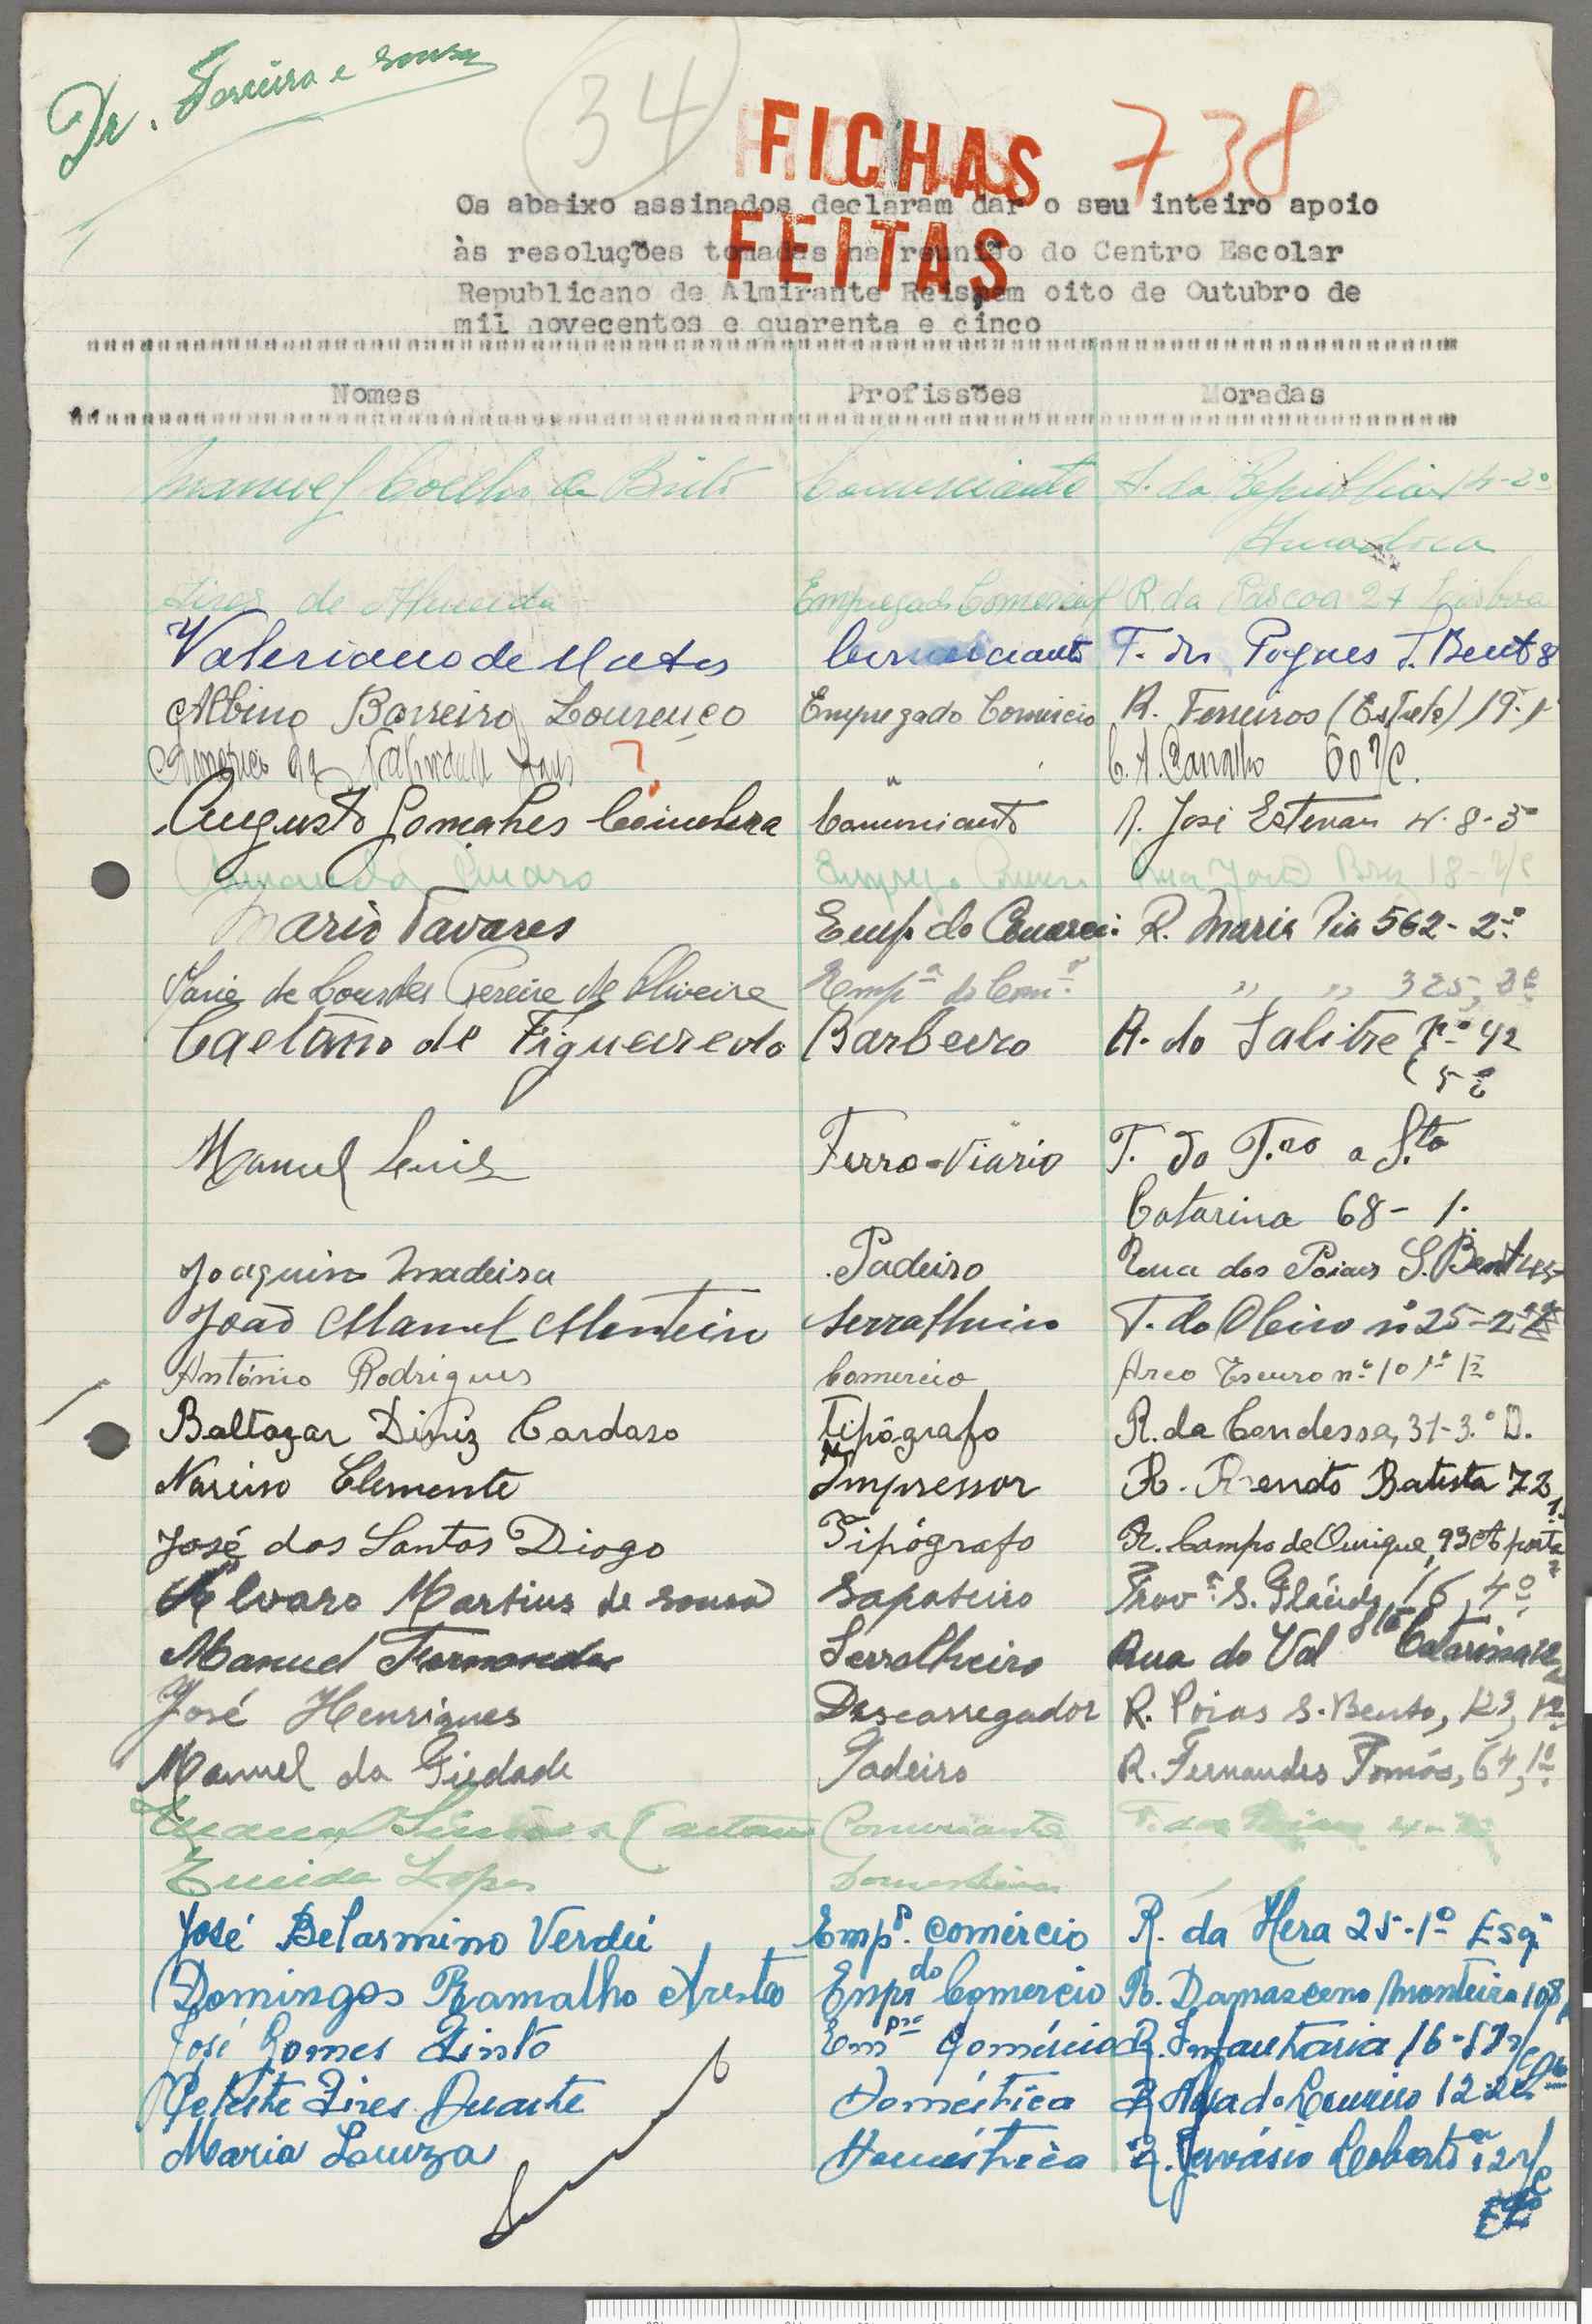 Dr. e Sousa
34
FICHAS
738
Os abaixo assinados declaram dar o seu inteiro apoio
às resoluções tomadas na reunião do Centro Escolar
FEITAS
Republicano de Almirante Reis, em oito de Outubro de
mil novecentos e quarenta e cinco
Nomes Profissões Moradas
Manuel Coelho de Brito Comerciante A. da Republica 14-2º
Amadora
Aires de Almeida Empregado Comercial R. da Pascoa 27 Lisboa
Valeriano de Matos Comerciante T. S. Bento 8
Albino Barreiro Lourenço Empregado Comercio R. Ferreiros (Estrela) 19-1º
? " C. A. Carvalho 60 r/c.
Augusto Gonçalves Coimbra Comerciante R. José Estevam 8-3º
18-r/c
Mario Tavares Emp. do Comercio R. Maria Pia 562-2º
Maria de Lourdes Pereira de Oliveira Emp.ª do Com.º " " 325, 3º
Caetano de Figueiredo Barbeiro R. do Salitre nº 42
5º
Manuel Luis Ferro-Viário T. do T.ro a S.ta
Catarina 68-1.
Joaquim Madeira Padeiro Rua dos Poiais S. Bento
João Manuel Monteiro Serralheiro T. do Oleiro nº 25-2º
António Rodrigues Comercio Arco Escuro nº 10 1º
Baltazar Diniz Cardoso Tipógrafo R. da Condessa, 31-3.º D.
Narciso Clemente Impressor R. Batista 72
José dos Santos Diogo Tipógrafo R. Campo de Ourique, 93 A porta
Alvaro Martins de Sousa Sapateiro Trav.ª S. Plácido, 16, 4º
Manuel Fernandes Serralheiro Rua do Val Sta Catarina
José Henriques Descarregador R. Poiais S. Bento, 123, 1º
Manuel da Piedade Padeiro R. Fernandes Tomás, 64, 1º
Manuel Simões Caetano Comerciante
Lopes Domestica
José Belarmino Verdú Emp.º comércio R. da Hera 25-1º Esq.
Domingos Ramalho Emp. do Comercio R. Damasceno Monteiro 108
José Gomes Pinto Em.pre Comércio R. Infantaria 16-
Celeste Pires Duarte Doméstica
Maria Louza Doméstica R. Gervásio Lobato